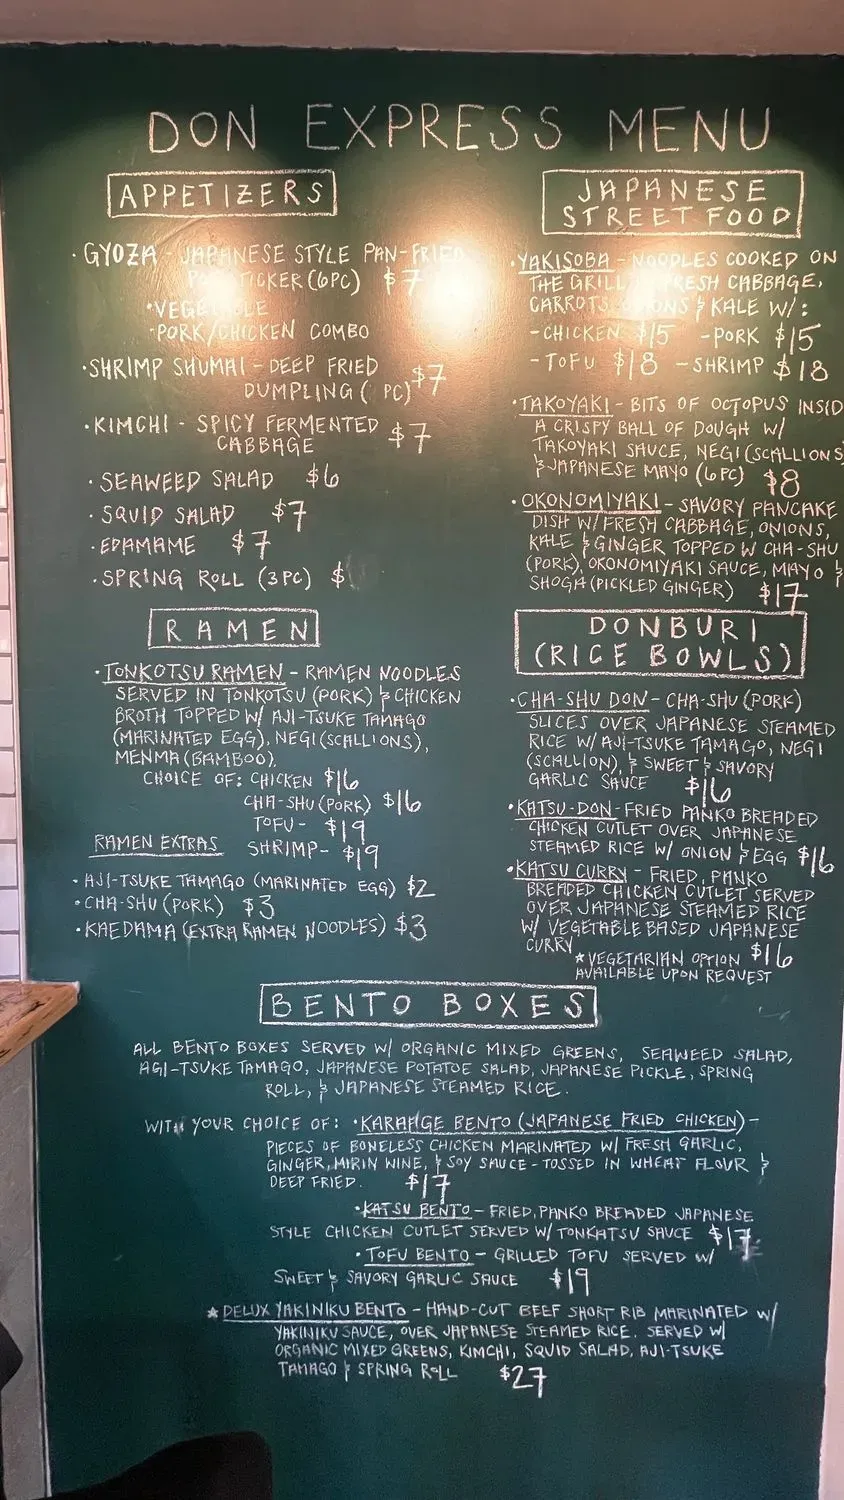 DON EXPRESS MENU
APPETIZERS
· GYOZA - JAPANESE STYLE PAN-FRIED
(6PC) $7
·VEGETABLE
-PORK/CHICKEN COMBO
·SHRIMP SHUMAI - DEEP FRIED
DUMPLING ( PC) $7
·KIMCHI - SPICY FERMENTED
CABBAGE $7
·SEAWEED SALAD $6
·SQUID SALAD $7
·EDAMAME $7
·SPRING ROLL (3PC) $
RAMEN
·TONKOTSU RAMEN - RAMEN NOODLES
SERVED IN TONKOTSU (PORK) & CHICKEN
BROTH TOPPED W/ AJI-TSUKE TAMAGO
(MARINATED EGG), NEGI (SCALLIONS),
MENMA (BAMBOO).
CHOICE OF: CHICKEN $16
CHA-SHU (PORK) $16
TOFU - $19
SHRIMP- $19
RAMEN EXTRAS
·AJI-TSUKE TAMAGO (MARINATED EGG) $2
·CHA-SHU (PORK) $3
·KAEDAMA (EXTRA RAMEN NOODLES) $3
JAPANESE
STREET FOOD
·YAKISOBA - NOODLES COOKED ON
THE GRILL FRESH CABBAGE,
CARROTS, ONIONS & KALE W/:
-CHICKEN $15 -PORK $15
-TOFU $18 -SHRIMP $18
·TAKOYAKI - BITS OF OCTOPUS INSID
A CRISPY BALL OF DOUGH W/
TAKOYAKI SAUCE, NEGI (SCALLIONS)
& JAPANESE MAYO (6PC) $8
·OKONOMIYAKI - SAVORY PANCAKE
DISH W/ FRESH CABBAGE, ONIONS,
KALE & GINGER TOPPED W CHA-SHU
(PORK), OKONOMIYAKI SAUCE, MAYO &
SHOGA (PICKLED GINGER) $17
DONBURI
(RICE BOWLS)
·CHA-SHU DON - CHA-SHU (PORK)
SLICES OVER JAPANESE STEAMED
RICE W/ AJI-TSUKE TAMAGO, NEGI
(SCALLION), & SWEET & SAVORY
GARLIC SAUCE $16
·KATSU-DON - FRIED PANKO BREADED
CHICKEN CUTLET OVER JAPANESE
STEAMED RICE W/ ONION & EGG $16
·KATSU CURRY - FRIED, PANKO
BREADED CHICKEN CUTLET SERVED
OVER JAPANESE STEAMED RICE
W/ VEGETABLE BASED JAPANESE
CURRY $16
★VEGETARIAN OPTION
AVAILABLE UPON REQUEST
BENTO BOXES
ALL BENTO BOXES SERVED W/ ORGANIC MIXED GREENS, SEAWEED SALAD,
AGI-TSUKE TAMAGO, JAPANESE POTATOE SALAD, JAPANESE PICKLE, SPRING
ROLL, & JAPANESE STEAMED RICE.
WITH YOUR CHOICE OF: ·KARAAGE BENTO (JAPANESE FRIED CHICKEN) -
PIECES OF BONELESS CHICKEN MARINATED W/ FRESH GARLIC,
GINGER, MIRIN WINE, & SOY SAUCE - TOSSED IN WHEAT FLOUR &
DEEP FRIED. $17
·KATSU BENTO - FRIED, PANKO BREADED JAPANESE
STYLE CHICKEN CUTLET SERVED W/ TONKATSU SAUCE $17
·TOFU BENTO - GRILLED TOFU SERVED W/
SWEET & SAVORY GARLIC SAUCE $19
★DELUX YAKINIKU BENTO - HAND-CUT BEEF SHORT RIB MARINATED W/
YAKINIKU SAUCE, OVER JAPANESE STEAMED RICE. SERVED W/
ORGANIC MIXED GREENS, KIMCHI, SQUID SALAD, AJI-TSUKE
TAMAGO & SPRING ROLL $27